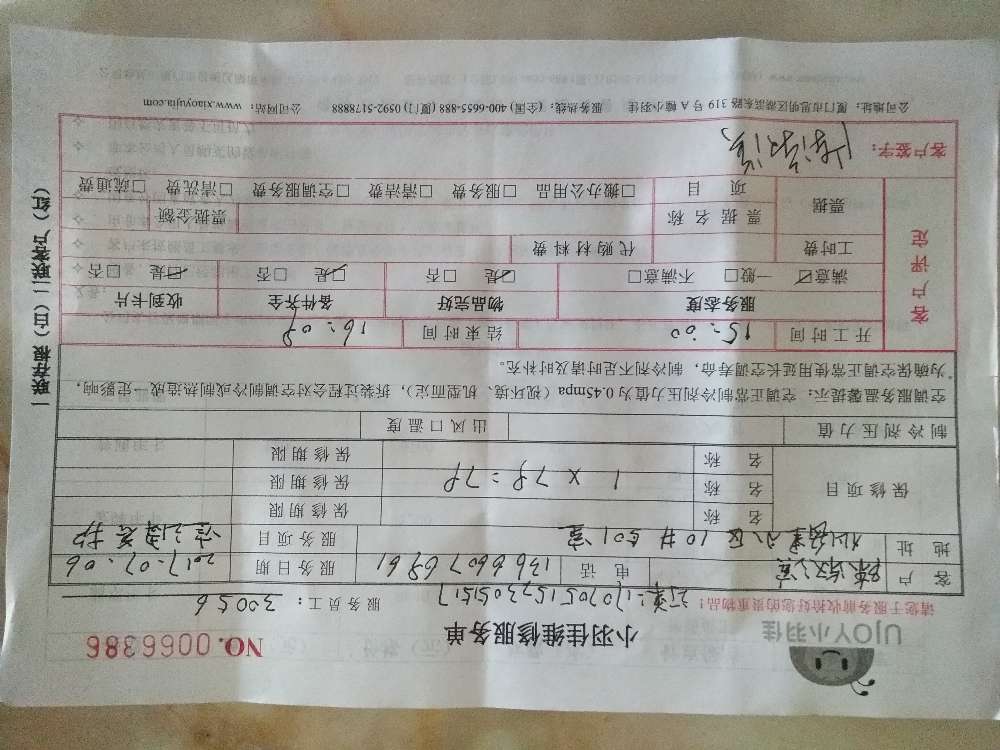 UJOY小羽佳
小羽佳维修服务单
NO. 0066386
请您于服务前收拾您的贵重物品!
1707051573051517
服务员工: 30056
客户
电话 13666076961
服务日期 2017.07.06
地址
服务项目
保修项目
名称
保修期限
名称
1×78=78
保修期限
名称
保修期限
制冷剂压力值
出风口温度
空调服务温馨提示:空调正常制冷剂压力值为0.45mpa(视环境、机型而定),拆装过程会对空调制冷或制热造成一定影响,
为确保空调正常使用延长空调寿命,制冷剂不足时请及时补充。
客户评定
开工时间 15:00
结束时间 16:08
服务态度 物品完好 备件齐全 收到卡片
☑满意 □一般 □不满意 ☑是 □否 ☑是 □否 ☑是 □否
工时费
代购材料费
票据
票据名称
票据金额
项目 □办公用品 □服务费 □清洁费 □空调服务费 □清洗费 □疏通费
客户签字:
公司地址:厦门市思明区湖滨东路319号A幢小羽佳 服务热线:(全国)400-6655-888 (厦门) 0592-5178888 公司网站:www.xiaoyujia.com
一联存根(白)二联客户(红)